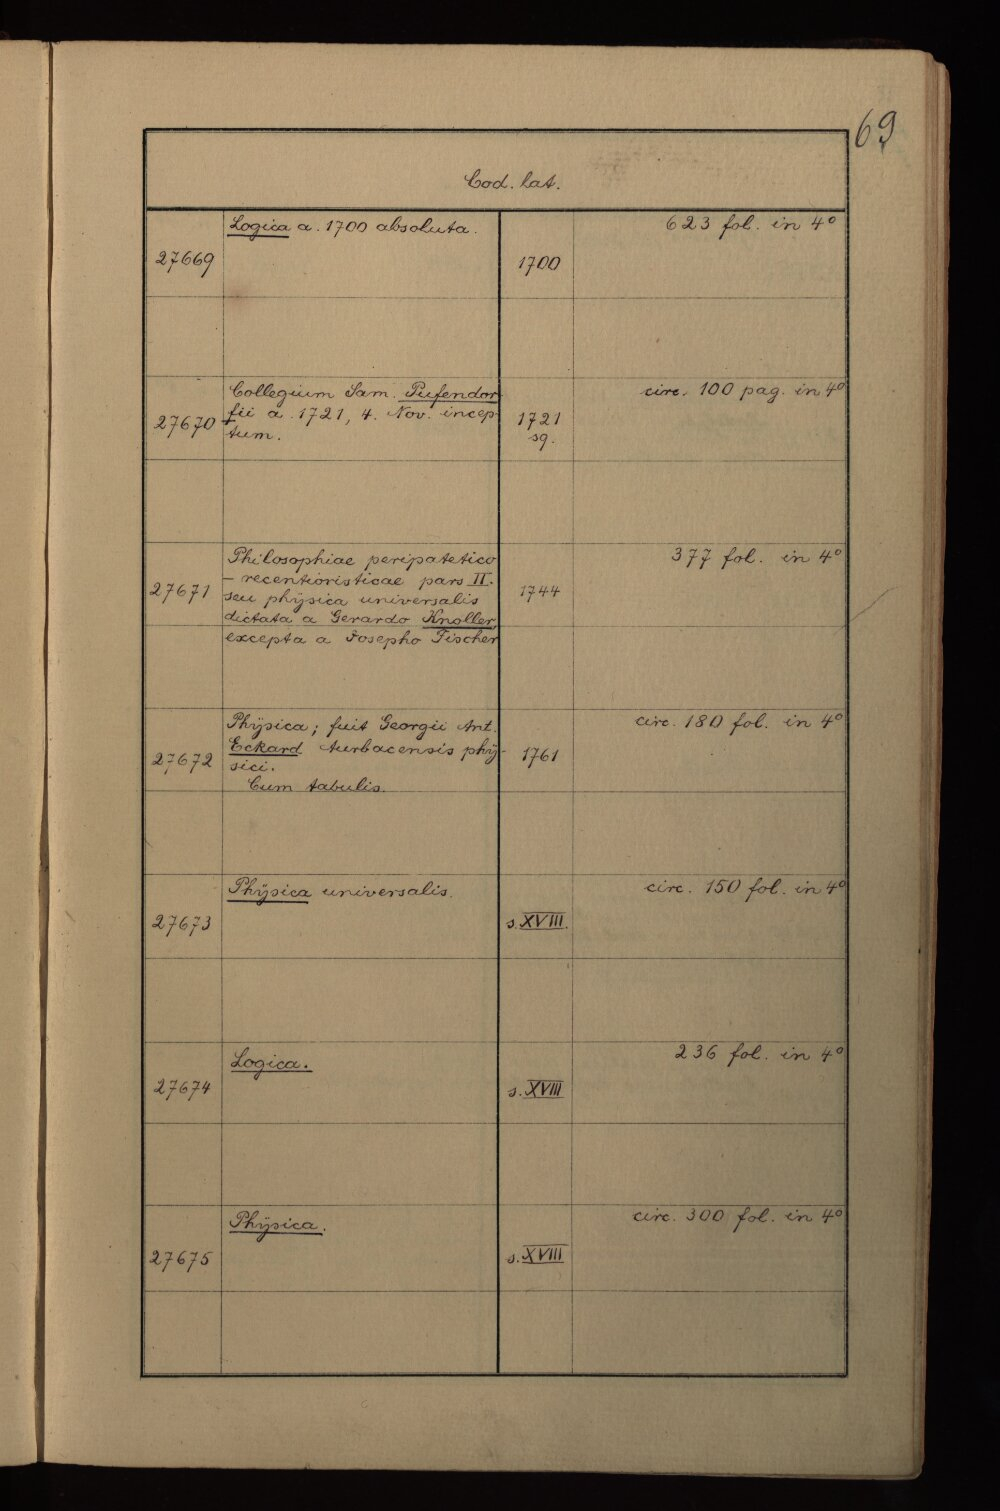 69
Cod. lat.
27669
Logica a. 1700 absoluta.
1700
623 fol. in 4º
27670
Collegium Sam. Pufendor
fii a. 1721, 4. Nov. incep-
tum.
1721
sq.
circ. 100 pag. in 4º
27671
Philosophiae peripatetico
– recentioristicae pars II.
seu physica universalis
dictata a Gerardo Knoller,
excepta a Josepho Fischer
1744
377 fol. in 4º
27672
Phÿsica; fuit Georgii Ant.
Eckard Aurbacensis phÿ-
sici.
Cum tabulis.
1761
circ. 180 fol. in 4º
27673
Phÿsica universalis.
s. XVIII.
circ. 150 fol. in 4º
27674
Logica.
s. XVIII
236 fol. in 4º
27675
Phÿsica.
s. XVIII
circ. 300 fol. in 4º